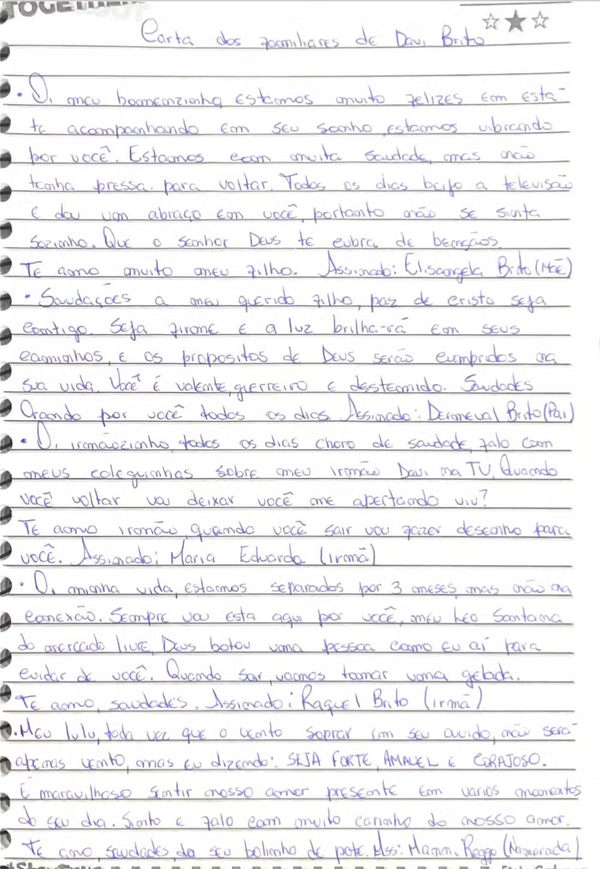 TOGETHER
Carta dos familiares de Davi Brito
• Oi meu homenzinho estamos muito felizes em está-
te acompanhando em seu sonho, estamos vibrando
por você. Estamos com muita saudade, mas não
tenha pressa para voltar. Todos os dias beijo a televisão
e dou um abraço em você, portanto não se sinta
sozinho. Que o senhor Deus te cubra de bençãos.
Te amo muito meu filho. Assinado: Elisangela Brito (Mãe)
• Saudações a meu querido filho, paz de cristo seja
contigo. Seja firme e a luz brilha-rá em seus
caminhos, e os propositos de Deus serão cumpridos na
sua vida. Você é valente, guerreiro e destemido. Saudades
Orando por você todos os dias. Assinado: Demerval Brito (Pai)
• Oi, irmãozinho, todos os dias choro de saudade, falo com
meus coleguinhas sobre meu irmão Davi na TV. Quando
você voltar vou deixar você me apertando viu?
Te amo irmão, quando você sair vou fazer desenho para
você. Assinado: Maria Eduarda (irmã)
• Oi, minha vida, estamos separados por 3 meses, mas não na
conexão. Sempre vou esta aqui por você, meu Léo Santana
do mercado livre, Deus botou uma pessoa como eu aí para
cuidar de você. Quando sair, vamos tomar uma gelada.
Te amo, saudades. Assinado: Raquel Brito (irmã)
• Meu lulu, toda vez que o vento soprar em seu ouvido, não será
apenas vento, mas eu dizendo: SEJA FORTE, AMAVEL E CORAJOSO.
É maravilhoso sentir nosso amor presente em varios momentos
do seu dia. Sinto e falo com muito carinho do nosso amor.
Te amo, saudades do seu bolinho de pote. Ass: Mann, Rego (Namorada)